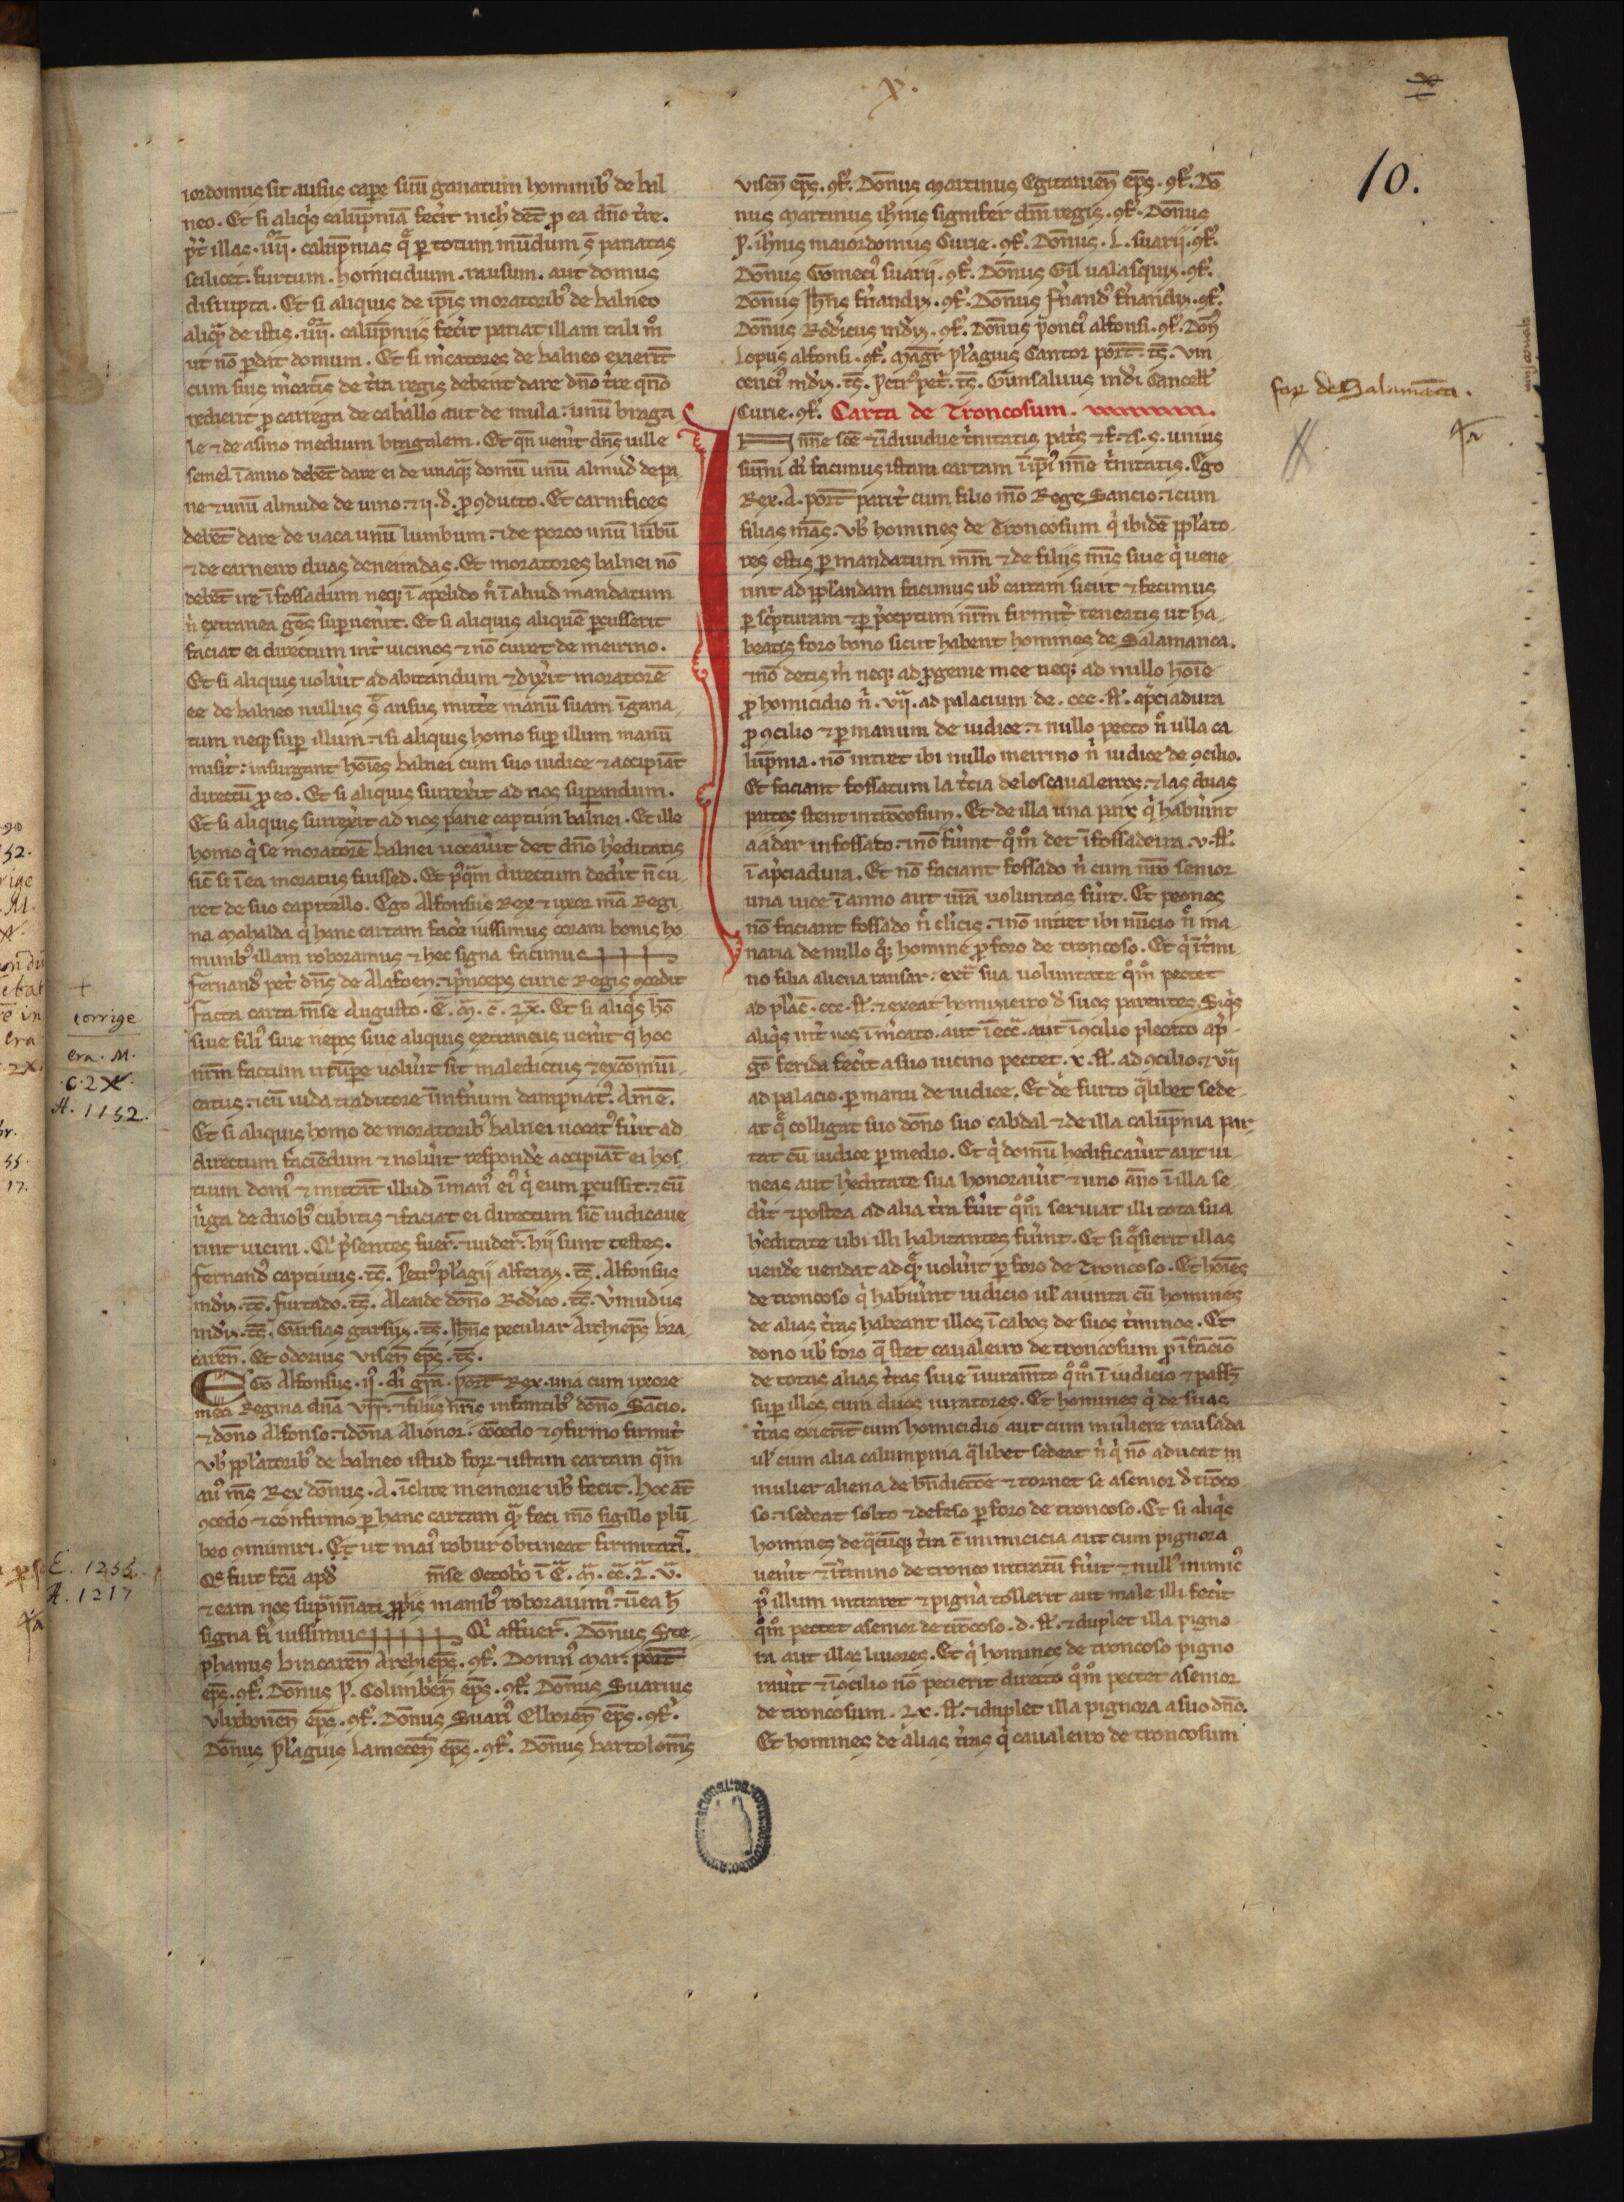 X.
10.
iordomus sit ausus cape suū ganatum hominibꝰ de bal
neo. Et si aliq̇s calūpniā fec̓it nich̓ det̄ ꝓ ea dn̄o tr̄e.
p̄t̓ illas .iiii. calūpnias q̄ ꝑ totum mundum s̄ pariatas
scilicet. furtum. homicidium. rausum. aut domus
disrupta. Et si aliquis de ip̄is moratoribꝰ de balneo
aliq̄ de istis .iiii. calūpniis fec̓it pariat illam tali mͦ
ut nō ꝑdat domum. Et si m̓catores de balneo exierīt
cum suis m̓catis de tr̄a regis debent dare dn̄o tr̄e qn̄o
redierit ꝓ carrega de caballo aut de mula: unū braga
le ⁊ de asino medium bragalem. Et qn̄ uen̓it dn̄s uille
semel ī anno debēt dare ei de unaq̄q; domū unū almud̓ de pa
ne ⁊ unū almude de uino: ⁊ ii. d. ꝓ ꝯducto. Et carnifices
debēt dare de uaca unū lumbum: ⁊ de porco unū lūbū
⁊ de carneiro duas deneiradas. Et moratores balnei nō
debēt ire ī fossadum neq; ī apelido n̄ ī aliud mandatum
n̓ extranea gēs suꝑuen̓it. Et si aliquis aliquē ꝑcusserit
faciat ei directum int̓ uicinos ⁊ nō curet de meirino.
Et si aliquis uolu̓it ad abitandum ⁊ dix̓it moratorē
ee de balneo nullus s̄ ausus mitt̓e manū suam ī gana
tum neq; suꝑ illum: ⁊ si aliquis homo suꝑ illum manū
mis̓it: insurgant hoīes balnei cum suo iudice ⁊ accipiāt
directū ꝓ eo. Et si aliquis surrex̓it ad nos suꝑandum.
Et si aliquis surrex̓it ad nos parie captum balnei. Et ille
homo q̇ se moratorē balnei uocau̓it det dn̄o h̓editatis
sic̄ si ī ea moratus fuissed. Et p̓q̄m directum ded̓it n̄ cu
ret de suo capitello. Ego Alfonsus Rex ⁊ uxor mā Regi
na Mahalda q̇ hanc cartam fac̓e iussimus coram bonis ho
minibꝰ illam roboramus ⁊ hec signa facimus
fernand̓ pet̓ dn̄s de Alafoen: ⁊ p̓nceps curie Regis ꝯcedit
facta carta m̄se Augusto. E. M. C. LX. Et si aliq̇s hō
siue filiꝰ siue nepos siue aliquis extraneus uen̓it q̇ hoc
nr̄m factum irrūpe uolu̓it sit maledictus ⁊ excomūi
catus: ⁊ cū iuda traditore ī inf̓num dampnatꝰ. Am̄e.
Et si aliquis homo de moratoribꝰ balnei uocatꝰ fu̓it ad
directum faciēdum ⁊ nolu̓it respond̓e accipiāt ei hos
tium domꝰ ⁊ mittāt illud ī manꝰ eiꝰ q̇ eum ꝑcussit: ⁊ cū
uirga de duobꝰ cubitis ⁊ faciat ei directum sic̄ iudicaue
rint uicini. Qi p̓sentes fuer̄. ⁊ uider̄. hii sunt testes.
fernand̓ captiuus. ts̄. Petrꝰ pl̓agii alferax. ts̄. Alfonsus
m̄d̓ix. ts̄. furtado. ts̄. Alcaide dōno Rod̓ico. ts̄. V̓mudus
m̄d̓ix. ts̄. Garsias garsiix. ts̄. Ioh̄s peculiar Archiep̄s bra
caren̄. Et odorius Visen̄ ep̄s. ts̄.
EGo Alfonsus. ii. di gr̄a. Port̄ Rex. una cum uxore
mea Regina dn̄a Vrr̄. ⁊ filiis nr̄is infantibꝰ dōno Sācio.
⁊ dōno Alfonso: ⁊ dōna Alionor. cōcedo ⁊ ꝯfirmo firmit̓
ub̓ ppl̓atoribꝰ de balneo istud for ⁊ istam cartam q̄m
auꝰ m̄s Rex dōnus. A. īclite memorie ub̓ fecit. Hoc āt
ꝯcedo ⁊ confirmo ꝑ hanc cartam q̄ feci meo sigillo plū
beo ꝯmuniri. Et ut maiꝰ robur obtineat firmitatis.
Qe fuit fc̄a apd̓ m̄se Octobr̓ ī E. M. CC. L. V.
⁊ eam nos sup̄nnati ꝓpiis manibꝰ roborauimꝰ: ⁊ ī ea h̄
signa fi̓ iussimus Qi affuer̄. Dōnus Ste
phanus bracaren̄ Archiep̄s. ꝯf̓. Domnꝰ Mar. port̄
ep̄s. ꝯf̓. Dōnus P. Colimb̓en̄ ep̄s. ꝯf̓. Dōnus Suarius
Vlixbonen̄ ep̄s. ꝯf̓. Dōnus Suarꝰ Elboren̄ ep̄s. ꝯf̓.
Dōnus pl̓agius Lamecen̄ ep̄s. ꝯf̓. Dōnus bartolom̄s
Visen̄ ep̄s. ꝯf̓. Dōnus Martinus Egitanien̄ ep̄s. ꝯf̓. Dō
nus Martinus ioh̄nis signifer dn̄i regis. ꝯf̓. Dōnus
P. ioh̄nis maiordomus Curie. ꝯf̓. Dōnus. L. suarii. ꝯf̓.
Dōnus Gomeciꝰ suarii. ꝯf̓. Dōnus Gil ualasquix. ꝯf̓.
Dōnus Ioh̄s f̓nandix. ꝯf̓. Dōnus f̓nand̓ f̓nandix. ꝯf̓.
Dōnus Rod̓icus m̄d̓ix. ꝯf̓. Dōnus ponciꝰ alfonsi. ꝯf̓. Dōn̄
Lopus alfonsi. ꝯf̓. Mag̓r pl̓agius Cantor port̄. ts̄. Vin
cenciꝰ m̄d̓ix. ts̄. Petrꝰ pet̓. ts̄. Gunsaluus m̄d̓i Cancell̓
Curie. ꝯf̓. Carta de Troncosum.
IN nn̄e sc̄e ⁊ īdiuidue t̓nitatis pat̓s ⁊ f. ⁊ s. s. unius
sum̄i di facimus istam cartam ī ip̄iꝰ nn̄e t̓nitatis. Ego
Rex. A. port̄ parit̓ cum filio meo Rege Sancio: ⁊ cum
filias meas. Vob̓ homines de Troncosum q̇ ibidē ppl̓ato
res estis ꝑ mandatum mm̄ ⁊ de filiis m̄is siue q̇ uene
rint ad ppl̓andam facimus ub̓ cartam sicut ⁊ fecimus
ꝑ sc̓pturam ⁊ ꝑ p̓ceptum nr̄m firmit̓ teneatis ut ha
beatis foro bono sicut habent homines de Salamanca.
⁊ nō detis m̓ neq; ad ꝓgenie mee neq; ad nullo hoīe
ꝓ homicidio n̓. vii. ad palacium de. ccc. ff̓. ap̓ciadura
ꝓ ꝯcilio ⁊ ꝑ manum de iudice: ⁊ nullo pecto n̄ ulla ca
lūpnia. nō intret ibi nullo meirino n̓ iudice de ꝯcilio.
Et faciant fossatum la t̓cia de los caualeiros: ⁊ las duas
partes stent in trōcosum. Et de illa una pars q̇ habu̓int
a ādar in fossato: ⁊ nō fu̓int qͦmͦ det ī fossadeira. v. ff̓.
ī ap̓ciadura. Et nō faciant fossado n̓ cum nr̄o senior
una uice ī anno aut ur̄a uoluntas fu̓it. Et peones
nō faciant fossado n̄ cl̓icis: ⁊ nō intret ibi nūcio n̄ ma
naria de nullo q̇; homine ꝓ foro de troncoso. Et q̇ īt̓mi
no filia aliena rausar: ext̄ sua uoluntate qͦmͦ pectet
ad plac̄. ccc. ff̓. ⁊ exeat homizieiro d̓ suos parentes. Siq̇s
aliq̇s int̓ uos ī m̓cato. aut ī ecc̄a. aut ī ꝯcilio plecato ap̓
gō ferida fec̓it a suo uicino pectet. x. ff̓. ad ꝯcilio: ⁊ vii
ad palacio. ꝑ manu de iudice. Et de furto q̄libet sede
at q̄ colligat suo dōno suo cabdal ⁊ de illa calūpnia par
tat cū iudice ꝑ medio. Et q̇ domū hedificau̓it aut ui
neas aut h̓editate sua honorau̓it ⁊ uno āno ī illa se
d̓it ⁊ postea ad alia tr̄a fu̓it qͦmͦ seruiat illi tota sua
h̓editate ubi illi habitantes fu̓int. Et si q̄sierit illas
uend̓e uendat ad q̄m uolu̓it ꝑ foro de Troncoso. Et hoīes
de troncoso q̇ habu̓int iudicio ul̓ aiunta cū homines
de alias tr̄as habeant illos ī cabos de suos t̓minos. Et
dono ub̓ foro q̄ stet caualeiro de troncosum ꝓ īfācion̄
de totas alias tr̄as siue ī iuramēto qͦmͦ ī iudicio ⁊ pass̄
suꝑ illos cum duos iuratores. Et homines q̇ de suas
tr̄as exierīt cum homicidio aut cum muliere rausada
ul̓ cum alia calumpnia q̄libet sedeat n̓ q̇ nō aducat in
mulier aliena de bn̄dictōe ⁊ tornet se a senior d̓ trōco
so: ⁊ sedeat solto ⁊ defeso ꝑ foro de troncoso. Et si aliq̇s
homines de q̄cūq; tr̄a c̄ inimicicia aut cum pignora
uen̓it ⁊ ī t̓mino de tronco intratū fu̓it ⁊ nullꝰ inimicꝰ
pꝰ illum intraret ⁊ pign̓a tollerit aut male illi fec̓it
qͦmͦ pectet a senior de trōcoso. d. ff̓. ⁊ duplet illa pigno
ra aut illos liuores. Et q̇ homines de troncoso pigno
rau̓it ⁊ ī ꝯcilio nō petierit directo qͦmͦ pectet a senior
de troncosum. LX. ff̓. ⁊ duplet illa pignora a suo dn̄o.
Et homines de alias tr̄as q̇ caualeiro de troncosum
for de Salamāca.
+
corrige
era. M.
C. LX.
A. 1152.
E. 1255.
A. 1217